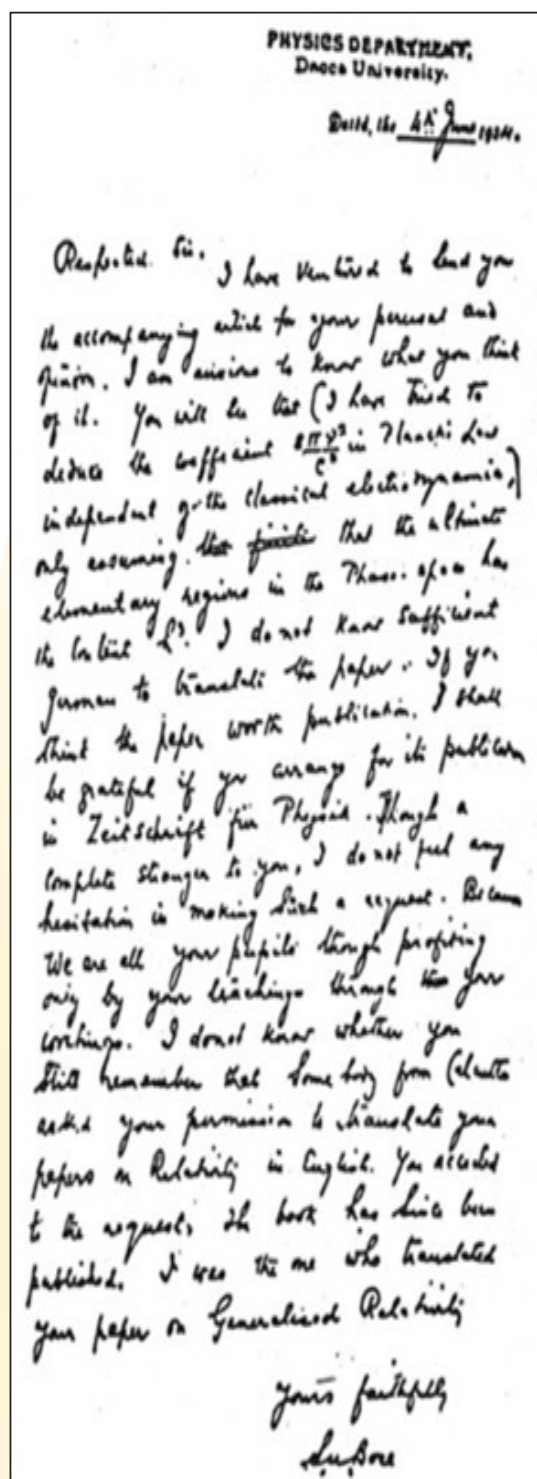 PHYSICS DEPARTMENT,
Dacca University.
Dated, the 4th June 1924.
Respected Sir, I have ventured to send you
the accompanying article for your perusal and
opinion. I am anxious to know what you think
of it. You will see that (I have tried to
deduce the coefficient 8πν²/c³ in Planck's Law
independent of the classical electrodynamics,)
only assuming that the ultimate
elementary regions in the Phase-space has
the content h³. I do not know sufficient
German to translate the paper. If you
think the paper worth publication, I shall
be grateful if you arrange for its publication
in Zeitschrift für Physik. Though a
complete stranger to you, I do not feel any
hesitation in making such a request. Because
We are all your pupils though profiting
only by your teachings through your
writings. I donot know whether you
still remember that Somebody from Calcutta
asked your permission to translate your
papers on Relativity in English. You acceded
to the request. The book has since been
published. I was the one who translated
your paper on Generalised Relativity
Yours faithfully
S.N. Bose